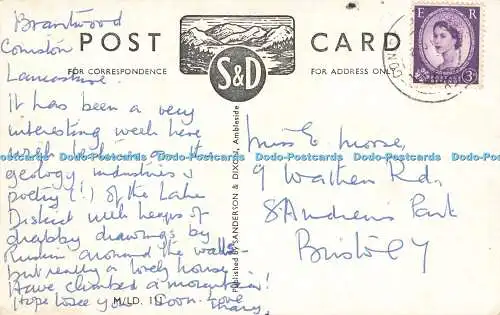 Brantwood
Coniston
Lancashire.
It has been a very
interesting week here
with lectures on the
geology, industries &
poetry (!) of the Lake
District with heaps of
drabby drawings by
Ruskin around the walls -
but really a lovely house.
Have climbed a mountain!
Hope to see you soon. Love
Mary
POST CARD
FOR CORRESPONDENCE
FOR ADDRESS ONLY
S&D
Published by SANDERSON & DIXON, Ambleside
M/LD. 151
E R
POSTAGE REVENUE
3D
Miss E. Morse,
9 Wathen Rd.,
St Andrews Park
Bristol 7
Dodo-Postcards Dodo-Postcards Dodo-Postcards Dodo-Postcards Dodo-Postcards Dodo-Postcards